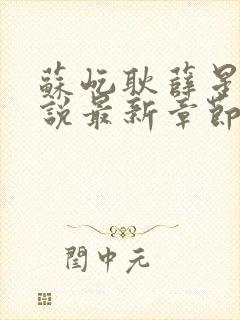 蘇屹耿薛星
說最新章節
閏中元